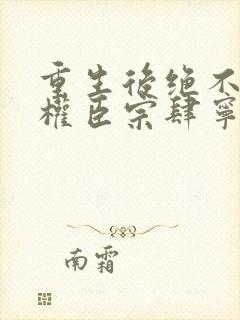 重生后绝不
權臣宗肆寧
南霜